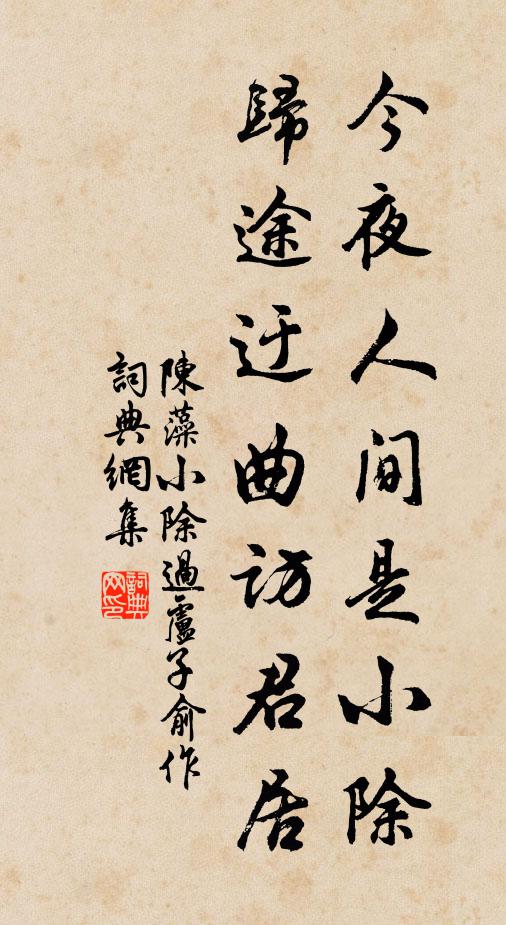 今夜人间是小除
歸途迂曲访君居
陳藻小除過盧子俞作
詞典網集
詞典网印